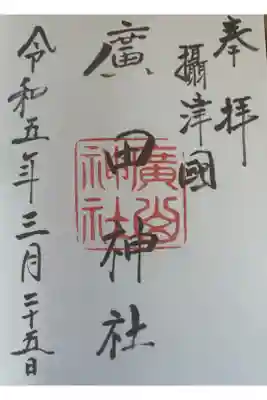 奉拝
攝津國
廣田神社
廣田神社
令和五年三月二十五日